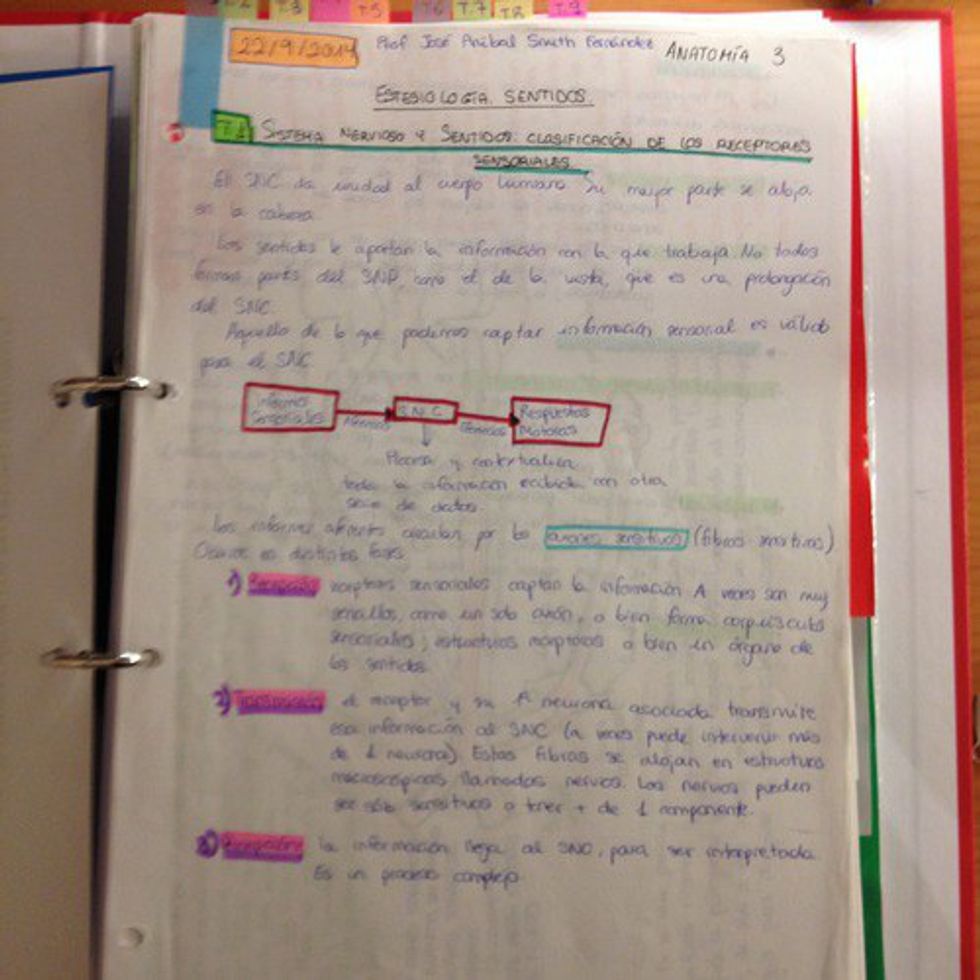 T.2 T.3 T.5 T.6 T.7 T.8 T.9
22/9/2014 Prof José Anibal Smith Fernández ANATOMÍA 3
ESTESIOLOGÍA. SENTIDOS.
T.1 SISTEMA NERVIOSO Y SENTIDOS: CLASIFICACIÓN DE LOS RECEPTORES
SENSORIALES.
El SNC da unidad al cuerpo humano. Su mayor parte se aloja
en la cabeza.
Los sentidos le aportan la información con la que trabaja. No todos
forman parte del SNP, como el de la vista, que es una prolongación
del SNC.
Aquello de lo que podemos captar información sensorial es válido
para el SNC.
Informes
Sensoriales
Aferencias
S.N.C
Eferencias
Respuestas
Motoras
Procesa y contextualiza
toda la información recibida con otra
serie de datos.
Los informes aferentes circulan por los axones sensitivos (fibras sensitivas)
Ocurre en distintas fases
1) Recepción receptores sensoriales captan la información A veces son muy
sencillos, como un solo axón, o bien forma corpúsculos
sensoriales; estructuras receptoras o bien un órgano de
los sentidos.
2) Transmisión el receptor y su 1ª neurona asociada transmite
esa información al SNC (a veces puede intervenir más
de 1 neurona). Estas fibras se alojan en estructuras
macroscópicas llamadas nervios. Los nervios pueden
ser sólo sensitivos o tener + de 1 componente.
3) Percepción la información llega al SNC, para ser interpretada.
Es un proceso complejo